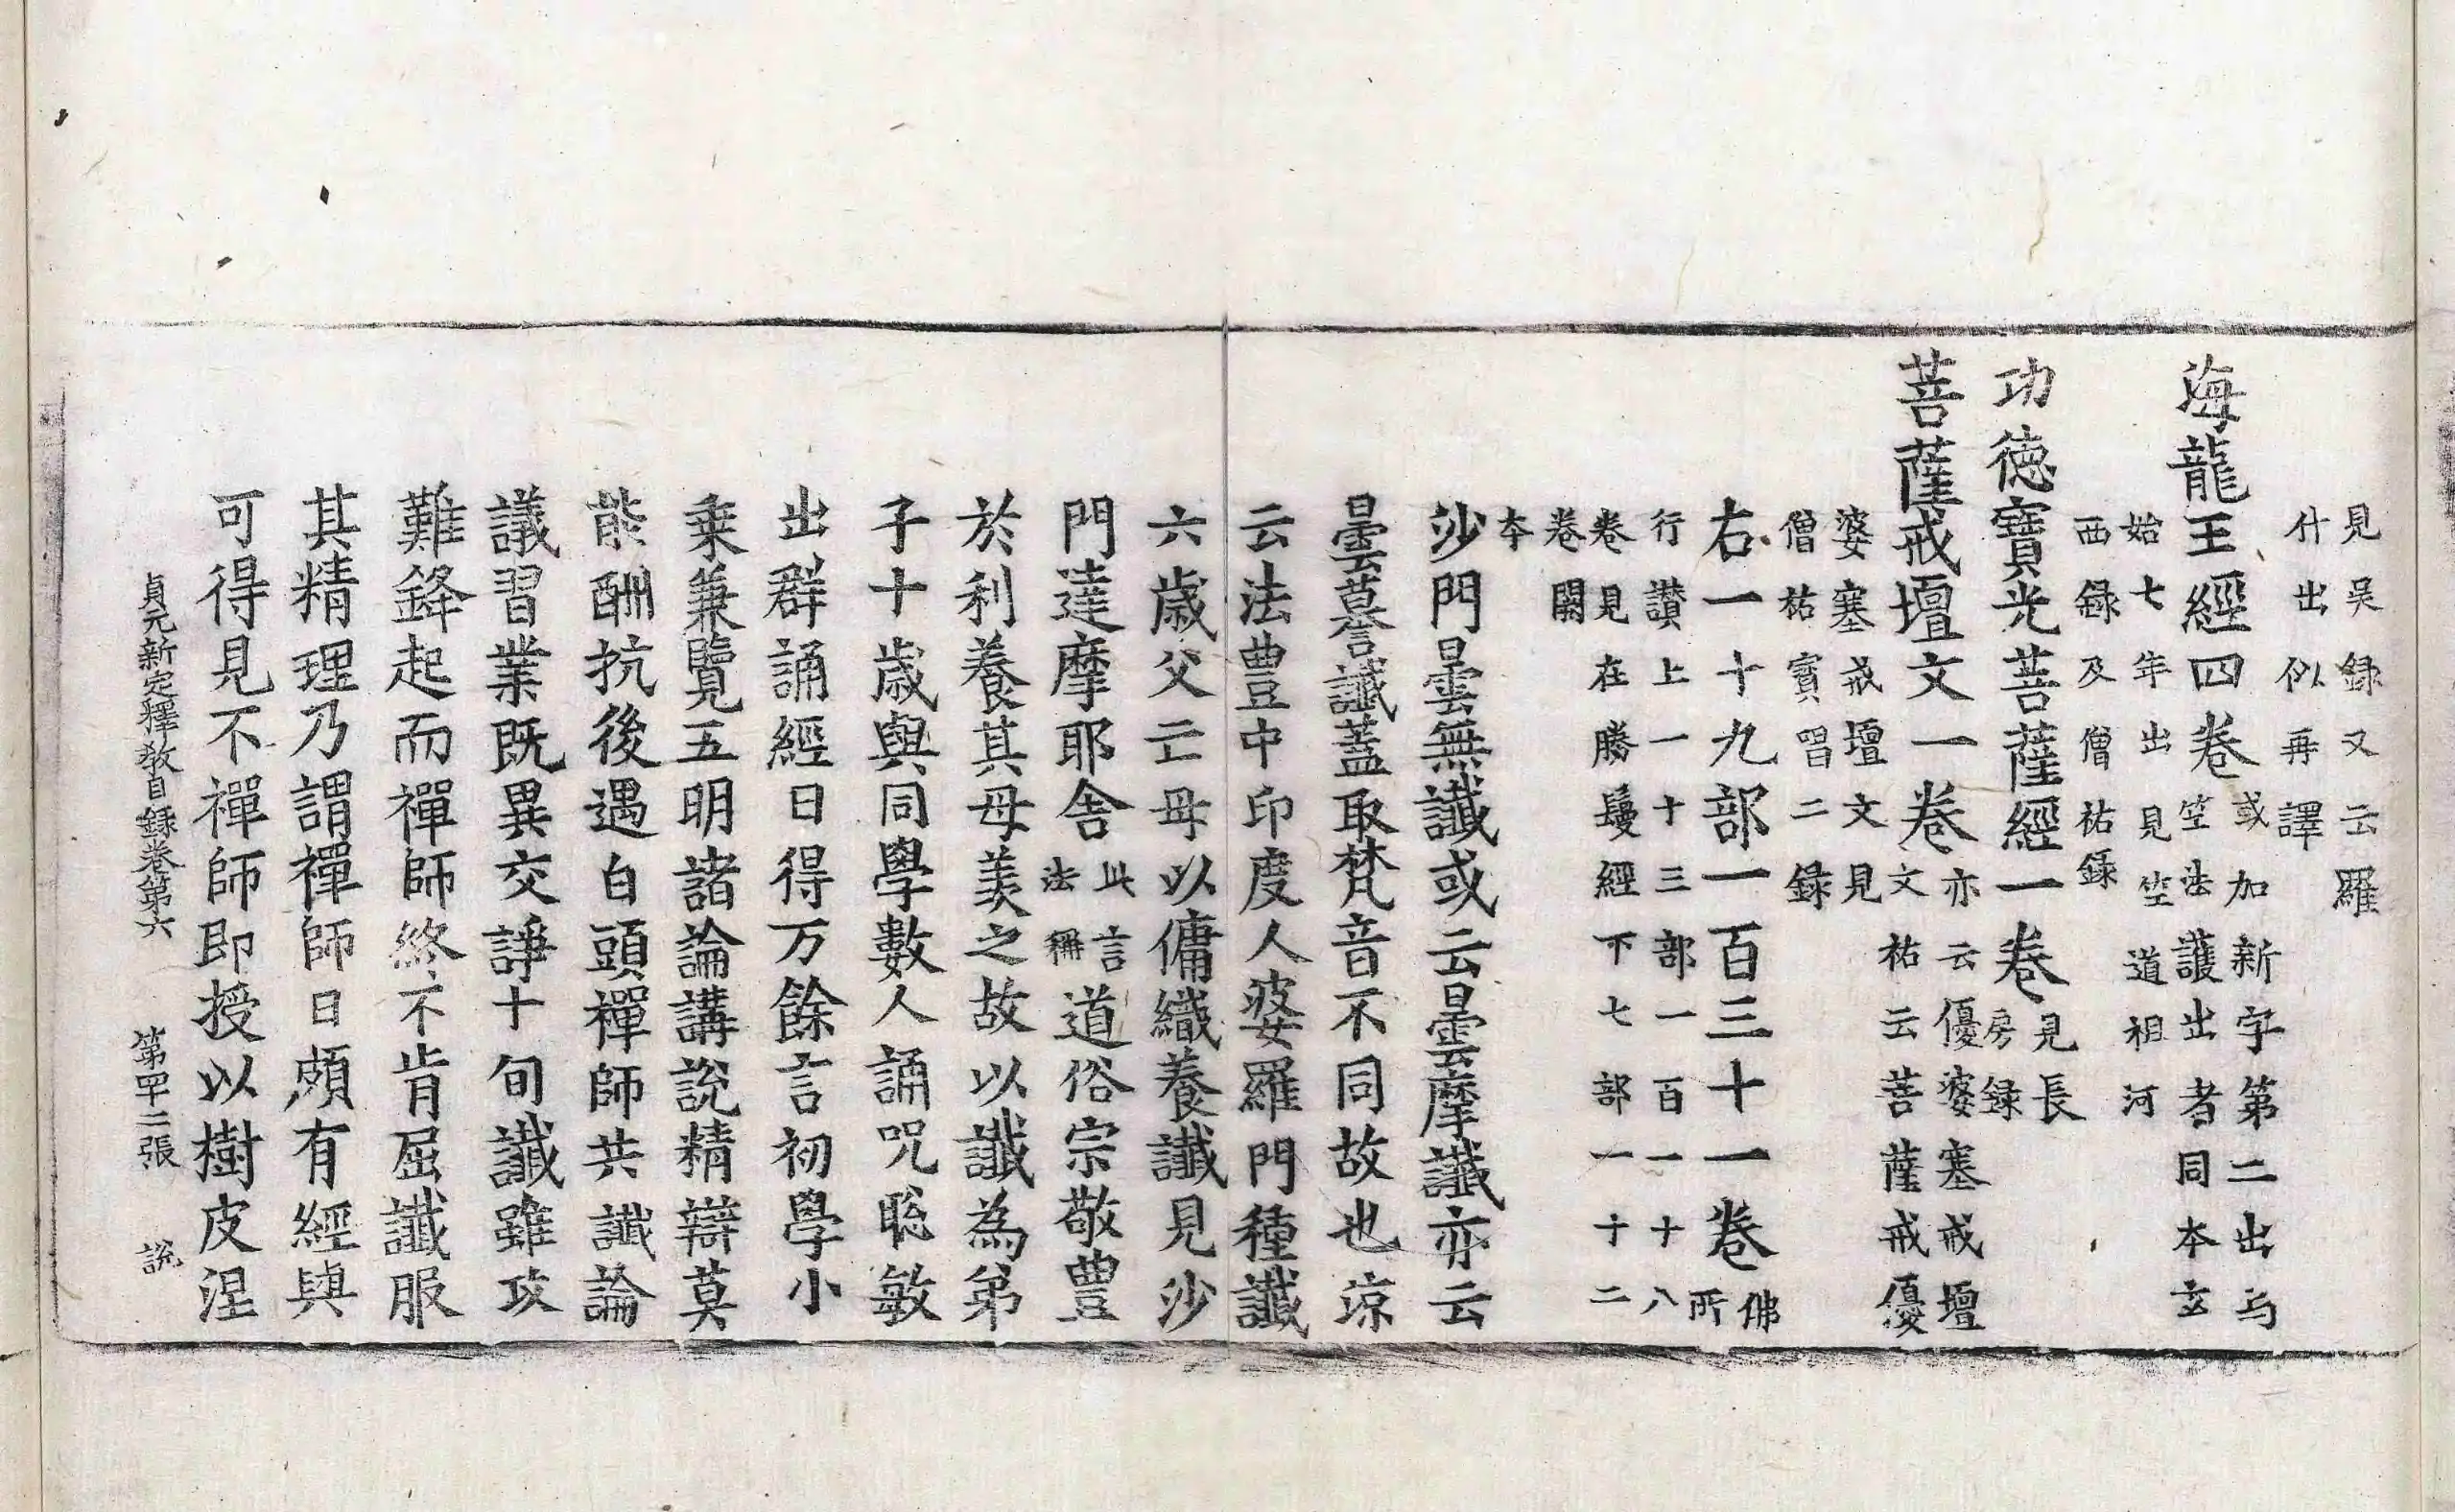 見吴録又云羅
什出似再譯
海龍王經四卷 或加新字第二出与
笁法護出者同本玄
始七年出見笁道祖河
西録及僧祐録
功徳寶光菩薩經一卷 見長
房録
菩薩戒壇文一卷 亦云優婆塞戒壇
文祐云菩薩戒優
婆塞戒壇文見
僧祐寶唱二録
右一十九部一百三十一卷 佛所
行讃上一十三部一百一十八
卷見在勝鬘經下七部一十二
卷闕
本
沙門曇無讖或云曇摩讖亦云
曇謩讖蓋取梵音不同故也涼
云法豊中印度人婆羅門種讖
六歳父亡母以傭織養讖見沙
門達摩耶舎 此言
法稱 道俗宗敬豊
於利養其母羙之故以讖為弟
子十歳與同學數人誦呪聡敏
出群誦經日得万餘言初學小
乗兼覽五明諸論講說精辯莫
能酬抗後遇白頭禪師共讖論
議習業既異交諍十旬讖雖攻
難鋒起而禪師終不肯屈讖服
其精理乃謂禪師曰頗有經與
可得見不禪師即授以樹皮涅
貞元新定釋教目録卷第六 第四十二張 說